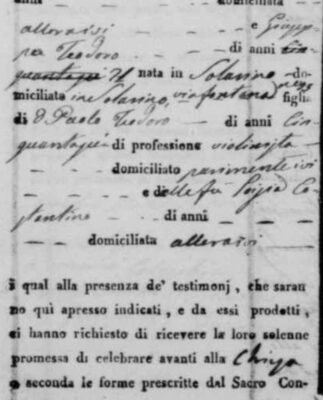 anni — — — domiciliata
alloraivi — — — — e Giusep-
pa Teodoro — — — di anni cin-
quantasei 21 nata in Solarino - do-
miciliata in Solarino, via fontana n. figlia
di D Paolo Teodoro — — di anni Cin-
quantasei di professione violinista
— — domiciliato parimente ivi
— — e di della fu Lucia Co-
stantino — — di anni — —
— — domiciliata alloraivi
i qual alla presenza de' testimonj, che saran
no qui apresso indicati, e da essi prodotti,
ci hanno richiesto di ricevere la loro solenne
promessa di celebrare avanti alla Chiesa
o seconda le forme prescritte dal Sacro Con-